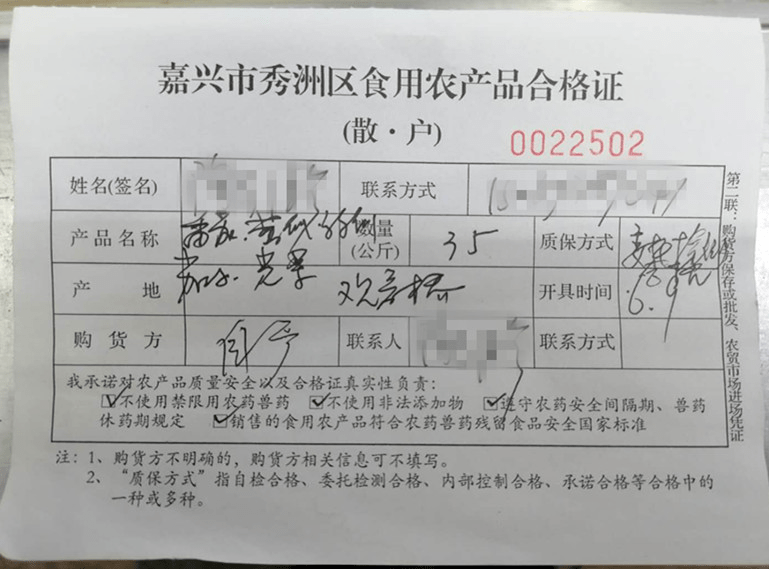 嘉兴市秀洲区食用农产品合格证
(散·户)
0022502
姓名(签名) 联系方式
产品名称 数量(公斤) 35 质保方式
产地 观音桥 开具时间 6.9
购货方 自产 联系人 联系方式
我承诺对农产品质量安全以及合格证真实性负责:
☑不使用禁限用农药兽药 ☑不使用非法添加物 ☑遵守农药安全间隔期、兽药
休药期规定 ☑销售的食用农产品符合农药兽药残留食品安全国家标准
注:1、购货方不明确的,购货方相关信息可不填写。
2、“质保方式”指自检合格、委托检测合格、内部控制合格、承诺合格等合格中的
一种或多种。
第二联:购货方保存或批发、农贸市场进场凭证